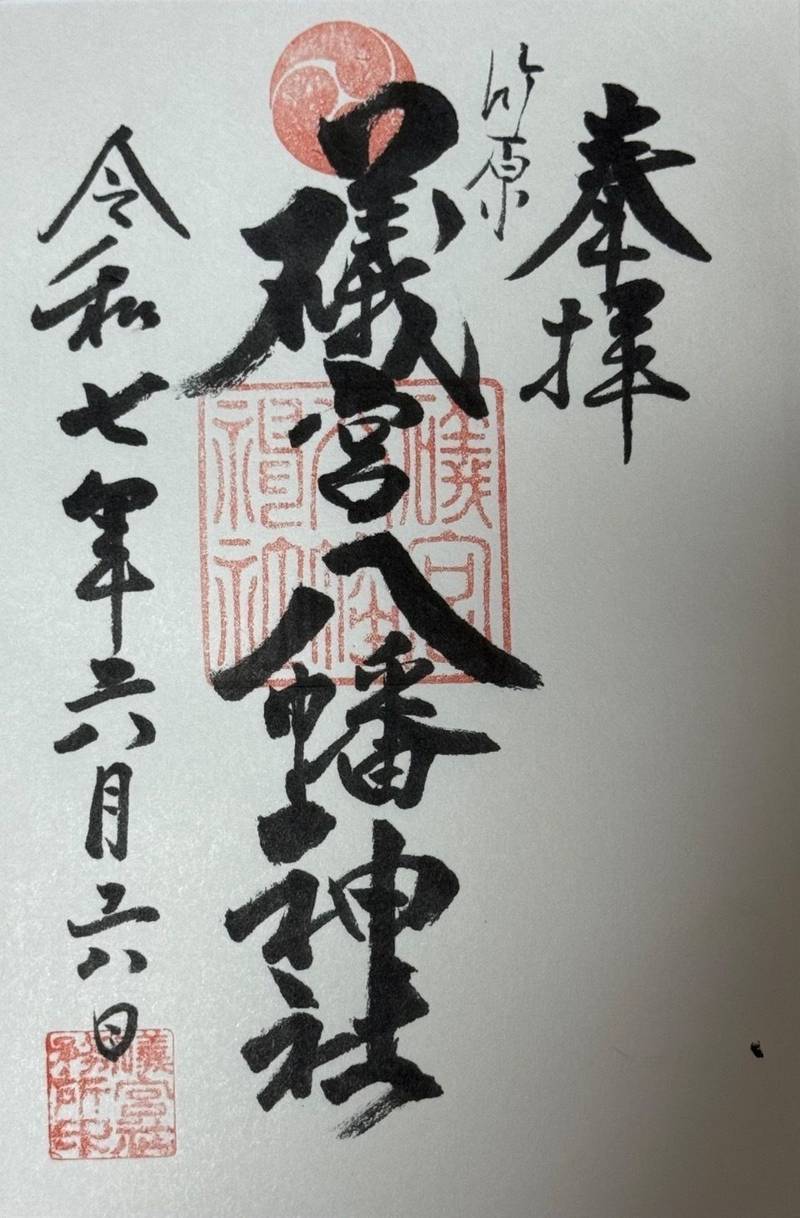 奉拝
竹原
礒宮八幡神社
令和七年六月六日
礒宮
八幡
神社
礒宮社
務所印